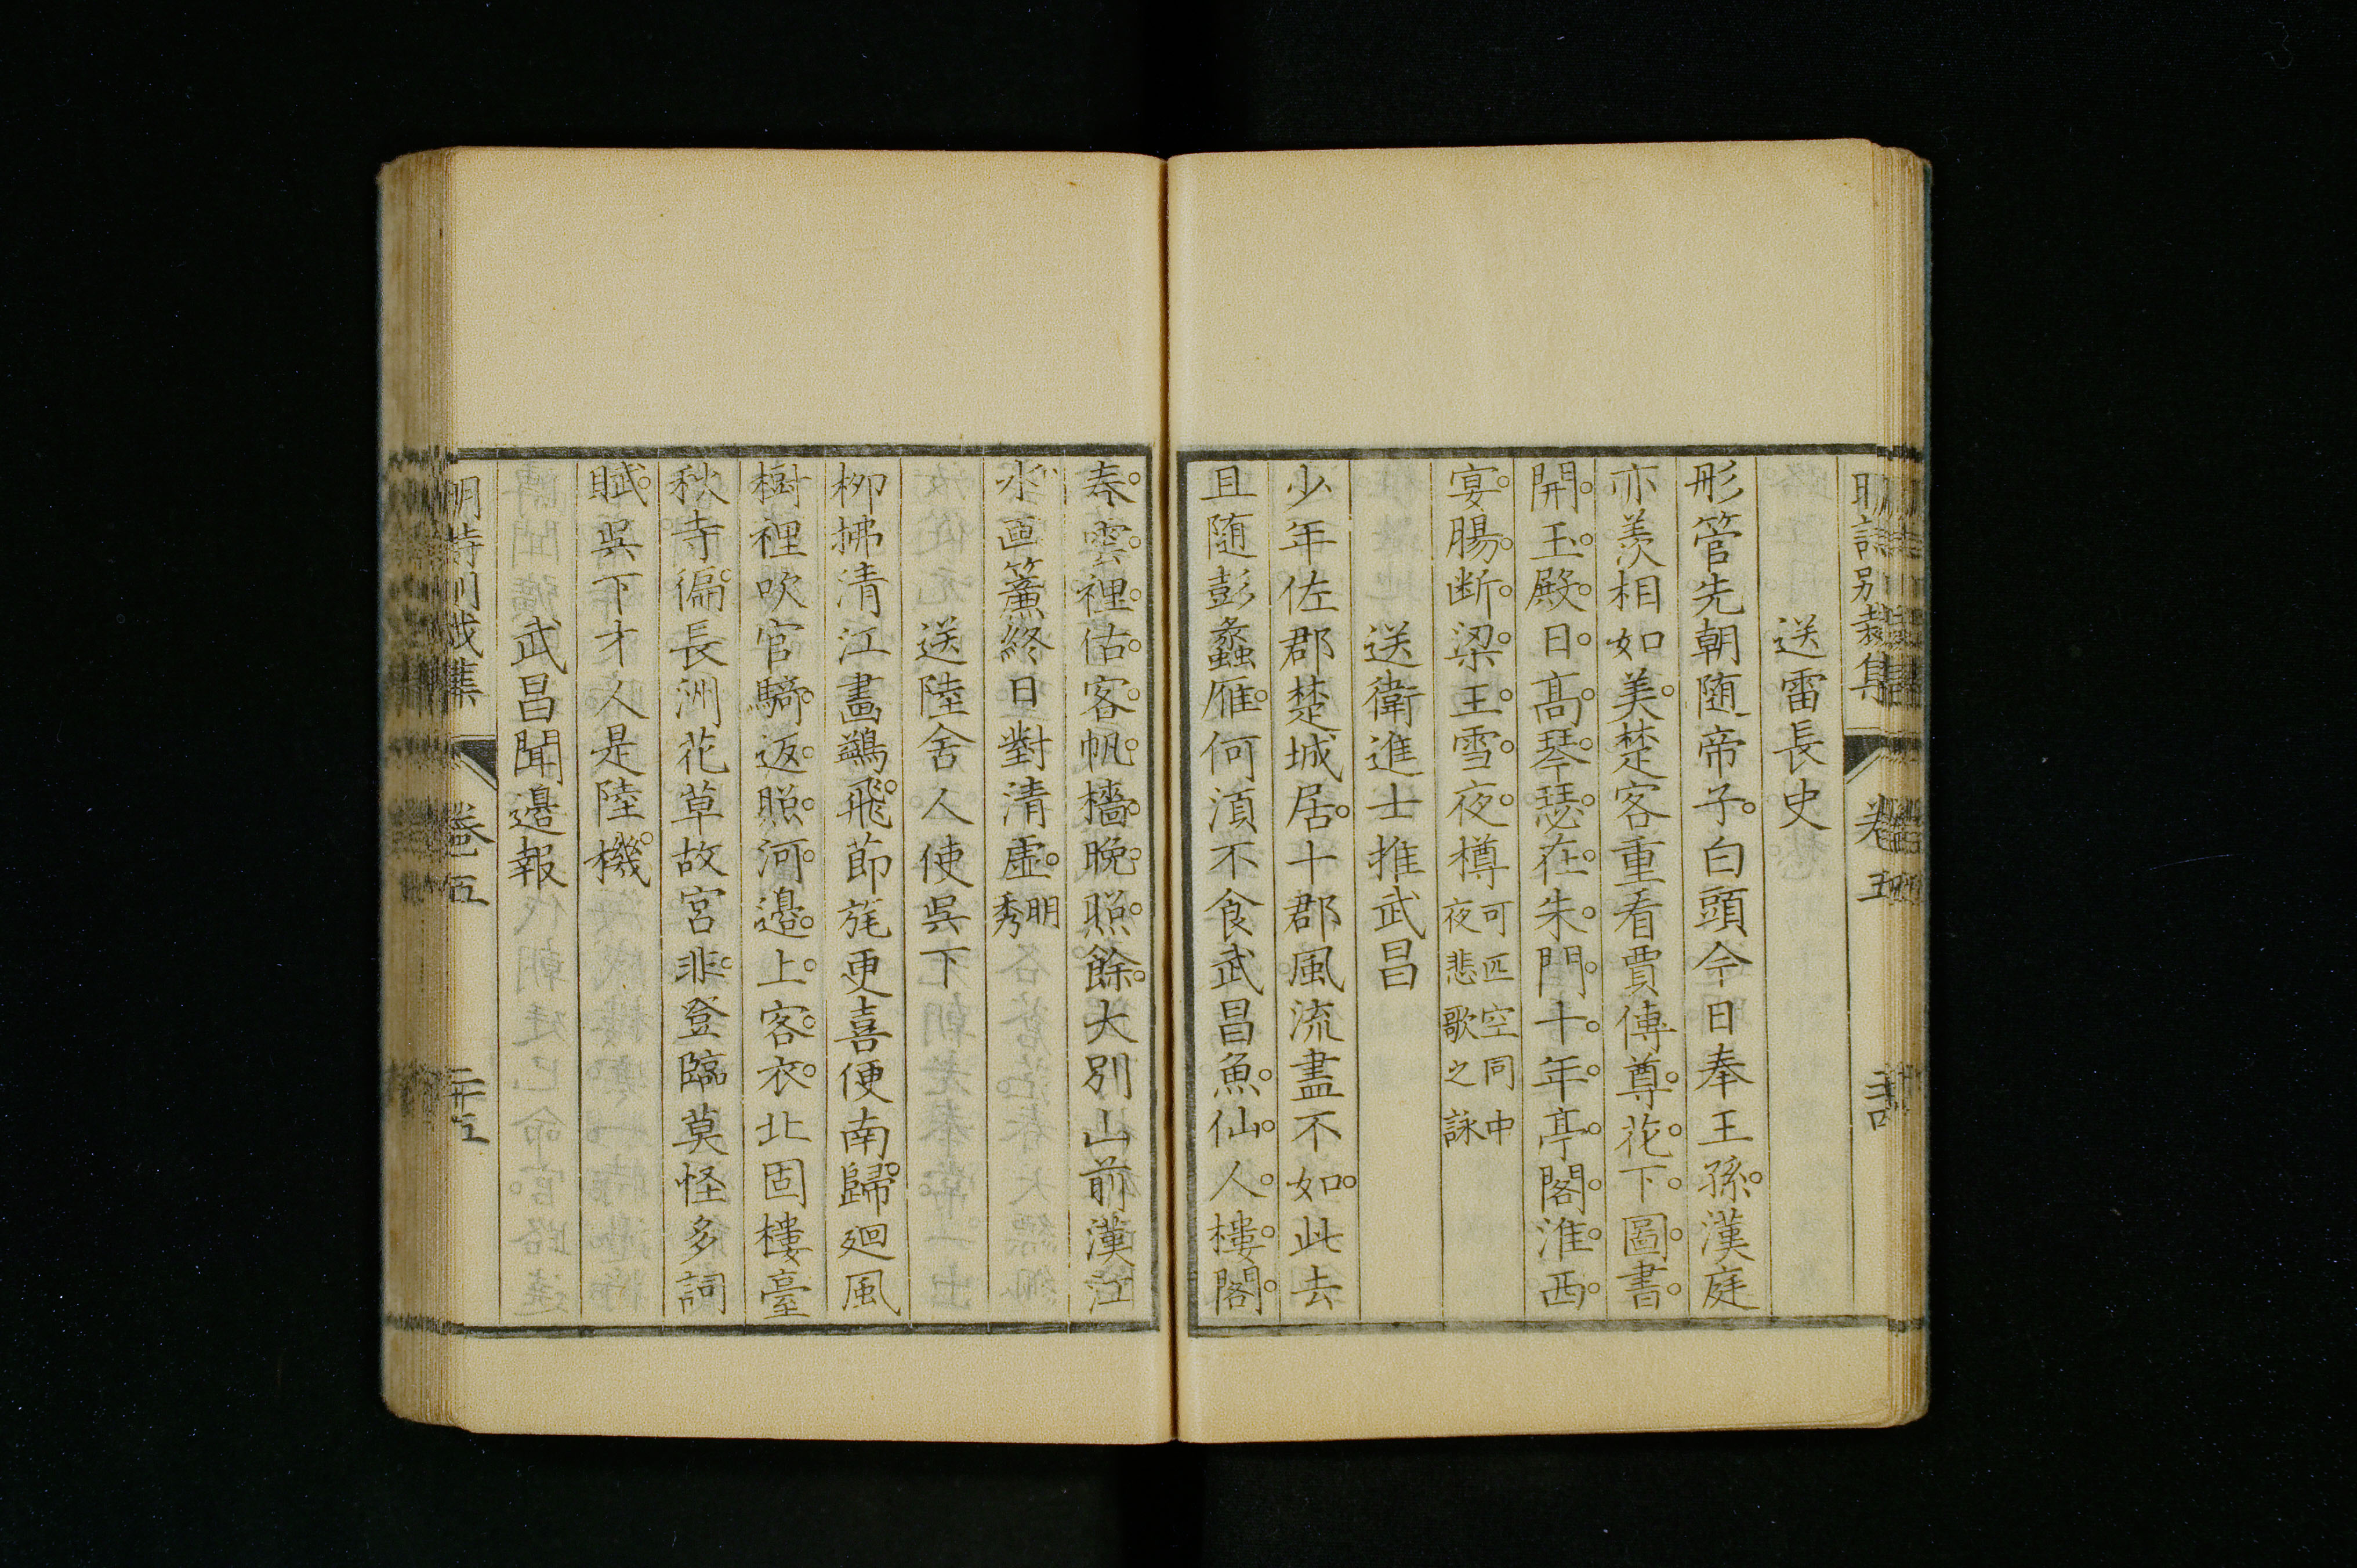 明詩別裁集 卷五
送雷長史
彤管先朝随帝子。白頭今日奉王孫。漢庭
亦羨相如美。楚客重看賈傅尊。花。下。圖。書。
開。玉。殿。日。高。琴。瑟。在。朱。門。十。年。亭。閣。淮。西。
宴。腸。断。梁。王。雪。夜。樽可匹空同中夜悲歌之詠
送衛進士推武昌
少年佐郡楚城居。十郡風流盡不如。此去
且随彭蠡雁。何湏不食武昌魚。仙。人。樓。閣。
春。雲。裡。估。客。帆。檣。晚。照。餘。大別山前漢江
水。畫簾終日對清虛。明秀
送陸舍人使吳下
栁拂清江畫鷁飛。節旄更喜便南歸。廻風
樹裡吹官騎。返。照。河。邊。上。客。衣。北固樓臺
秋寺徧。長洲花草故宮非。登臨莫怪多詞
賦。吳下才人是陸機。
武昌聞邊報
明詩別裁集 卷五